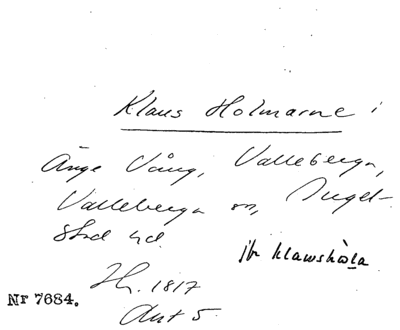 Klaus Holmarne i
Änge Vång, Valleberga,
Valleberga sn, Ingel-
stad hd.
jbr klawshåla
Hh. 1817
Akt 5.
Nr 7684.